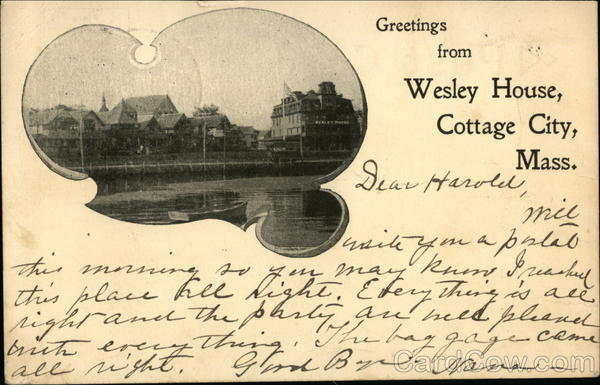 Greetings
from
Wesley House,
Cottage City,
Mass.
WESLEY HOUSE
Dear Harold,
Will
write you a postal
this morning so you may know I reached
this place all right. Everything is all
right and the party are well pleased
with everything. The baggage came
all right. Good Bye
CardCow.com